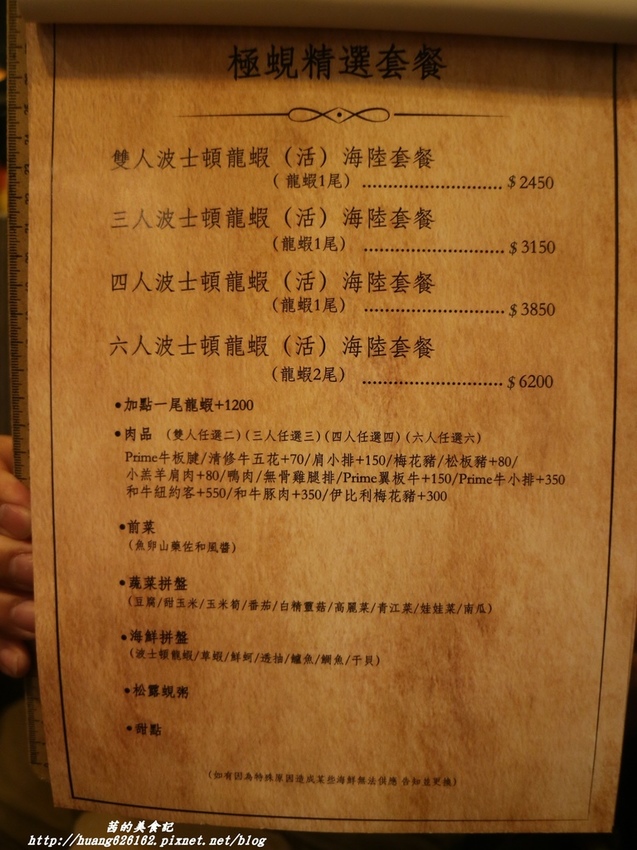 極蜆精選套餐
雙人波士頓龍蝦（活）海陸套餐
（龍蝦1尾）……………………$2450
三人波士頓龍蝦（活）海陸套餐
（龍蝦1尾）……………………$3150
四人波士頓龍蝦（活）海陸套餐
（龍蝦1尾）……………………$3850
六人波士頓龍蝦（活）海陸套餐
（龍蝦2尾）……………………$6200
•加點一尾龍蝦+1200
•肉品 （雙人任選二）（三人任選三）（四人任選四）（六人任選六）
Prime牛板腱/清修牛五花+70/肩小排+150/梅花豬/松板豬+80/
小羔羊肩肉+80/鴨肉/無骨雞腿排/Prime翼板牛+150/Prime牛小排+350
和牛紐約客+550/和牛豚肉+350/伊比利梅花豬+300
•前菜
（魚卵山藥佐和風醬）
•蔬菜拼盤
（豆腐/甜玉米/玉米筍/番茄/白精靈菇/高麗菜/青江菜/娃娃菜/南瓜）
•海鮮拼盤
（波士頓龍蝦/草蝦/鮮蚵/透抽/鱸魚/鯛魚/干貝）
•松露蜆粥
•甜點
（如有因為特殊原因造成某些海鮮無法供應 告知並更換）
茜的美食記
http://huang626162.pixnet.net/blog